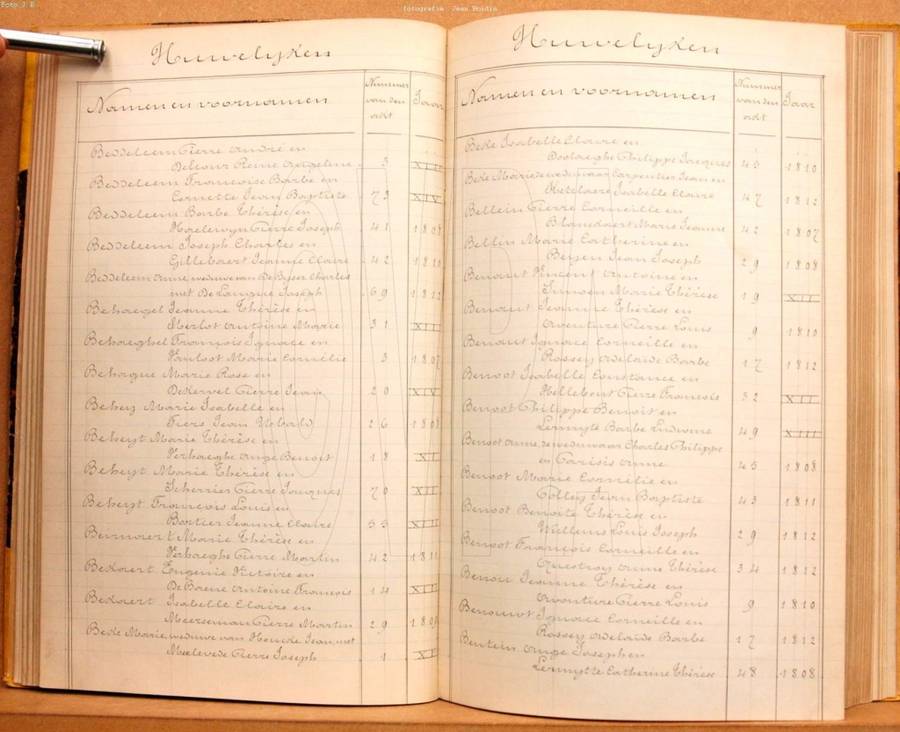 Foto J.E
fotografie Jean Boidin
Huwelyken
Namen en voornamen
Nummer van den acte
Jaar
Beddeleem Pierre André en
Delcour Reine Angeline 3 XIII
Beddeleem Françoise Barbe en
Cornette Jean Baptiste 73 XIV
Beddeleem Barbe Thérèse en
Pierre Joseph 41
Beddeleem Joseph Charles en
Gillebaert Jeanne Claire 42
Beddeleem Anne, weduwe van De Buser Charles
met De Langhe Joseph 69 1812
Behaegel Jeanne Thérèse en
Merlot Antoine Marie 31
Behaeghel François Ignace en
Vanloot Marie Cornélie 3 1807
Behague Marie Rose en
DeKervel Pierre Jean 20 XIV
Behey Marie Isabelle en
Fiers Jean Ubald 26 1808
Beheyt Marie Thérèse en
Verhaeghe Ange Benoit 18
Beheyt Marie Thérèse en
Scherrier Pierre Jacques 70
Beheyt François Louis en
Bortier Jeanne Claire 53
Marie Thérèse en
Verhaeghe Pierre Martin 42
Bekaert Eugenie Victoire en
Antoine François 14
Bekaert Isabelle Claire en
Meerseman Pierre Martin 29
Bele Marie, weduwe van Jean, met
Meulevede Pierre Joseph 1
Huwelyken
Namen en voornamen
Nummer van den acte
Jaar
Bele Isabelle Claire en
Philippe Jacques 45 1810
Bele Marie, de weduwe van Carpentier Jean en
Ketelaere Isabelle Claire 47 1812
Bellein Pierre Corneille en
Blanckaert Marie Jeanne 42 1807
Bellin Marie Catherine en
Beyen Jean Joseph 29 1808
Benaut Vincent Antoine en
Marie Thérèse 19 XII
Benaut Jeanne Thérèse en
Aventure Pierre Louis 9 1810
Benaut Ignace Corneille en
Rossey Adelaïde Barbe 17 1812
Benoot Isabelle Constance en
Hellebout Pierre François 32 XII
Benoot Philippe Benoit en
Lermyte Barbe Ludovine 49 XIII
Benoot Anne, de weduwe van Charles Philippe
en Parisis Anne 45 1808
Benoot Marie Cornélie en
Colley Jean Baptiste 43 1811
Benoot Benoite Thérèse en
Willems Louis Joseph 29 1812
Benoot François Corneille en
Questroy Anne Thérèse 34 1812
Benou Jeanne Thérèse en
Avonture Pierre Louis 9 1810
Ignace Corneille en
Rossey Adelaïde Barbe 17 1812
Bentein Ange Joseph en
Lermytte Catherine Thérèse 48 1808